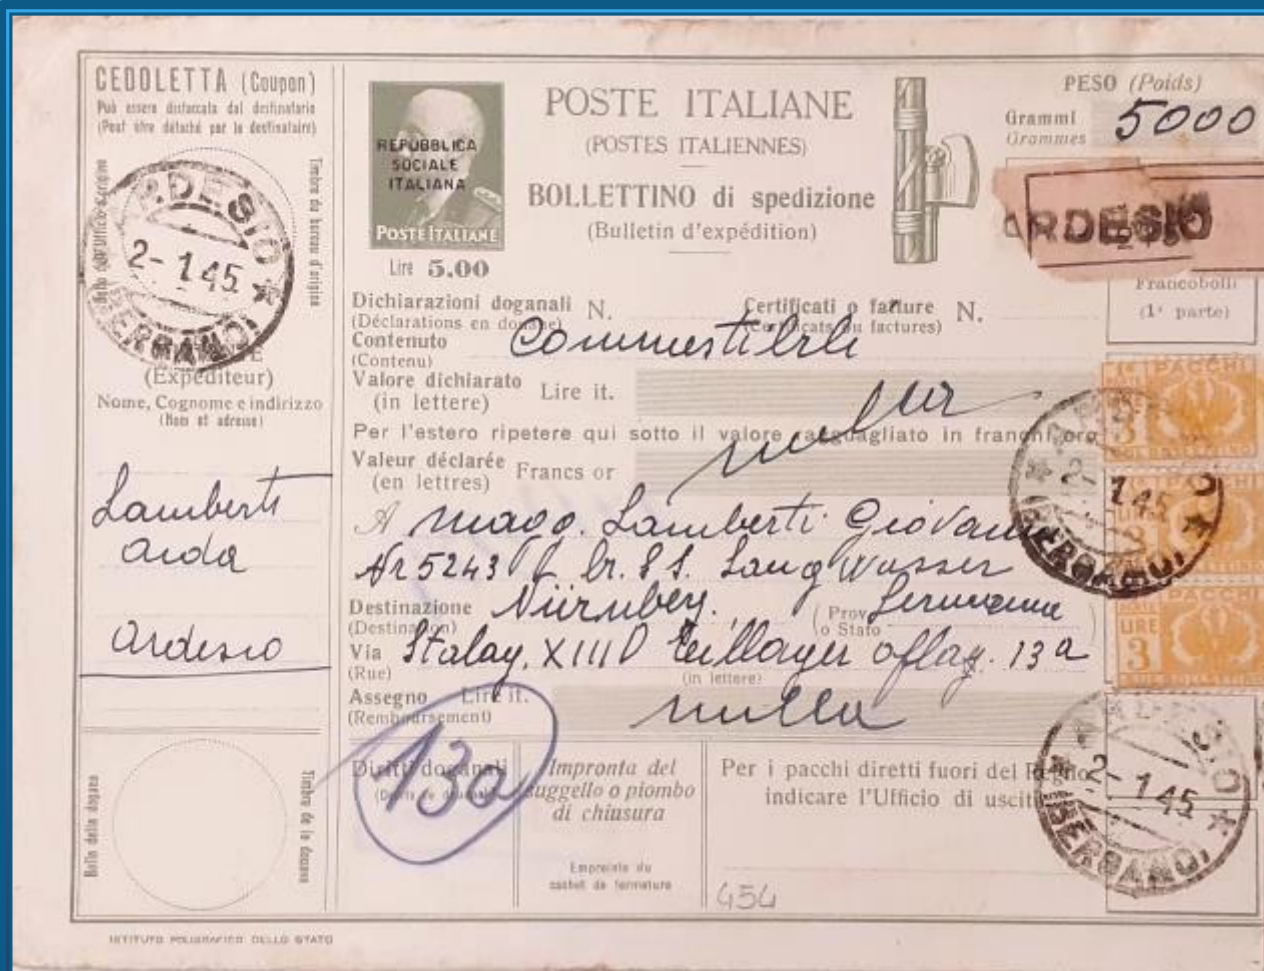 CEDOLETTA (Coupon)
Può essere distaccata dal destinatario
(Peut être détaché par le destinataire)
Bollo dell'Ufficio d'origine
Timbre du bureau d'origine
ARDESIO
2-1.45
(BERGAMO)
(Expéditeur)
Nome, Cognome e indirizzo
(Nom et adresse)
Lamberti
Aida
Ardesio
Bollo della dogana
Timbre de la douane
REPUBBLICA
SOCIALE
ITALIANA
POSTE ITALIANE
Lire 5.00
POSTE ITALIANE
(POSTES ITALIENNES)
BOLLETTINO di spedizione
(Bulletin d'expédition)
PESO (Poids)
Grammi
Grammes
5000
ARDESIO
Francobolli
(1ª parte)
Dichiarazioni doganali N.
(Déclarations en douane)
Certificati o fatture N.
(Certificats ou factures)
Contenuto
(Contenu)
Commestibili
Valore dichiarato Lire it.
(in lettere)
nulla
Per l'estero ripetere qui sotto il valore ragguagliato in franchi oro
Valeur déclarée Francs or
(en lettres)
A magg. Lamberti Giovanni
Nr 5243
Lang Wasser
Destinazione Nürnberg. (Prov. Germania)
(Destination) o Stato
Via Stalag. XIII D Teillager oflag. 13a
(Rue)
(in lettere)
Assegno Lire it. nulla
(Remboursement)
130
Diritti doganali
(Droits de douane)
Impronta del
suggello o piombo
di chiusura
Empreinte du
cachet de fermeture
Per i pacchi diretti fuori del Regno
indicare l'Ufficio di uscita
454
PACCHI
LIRE
3
SUL BOLLETTINO
ARDESIO
2-1.45
(BERGAMO)
PACCHI
3
PACCHI
LIRE
3
SUL BOLLETTINO
ARDESIO
2-1.45
(BERGAMO)
ISTITUTO POLIGRAFICO DELLO STATO